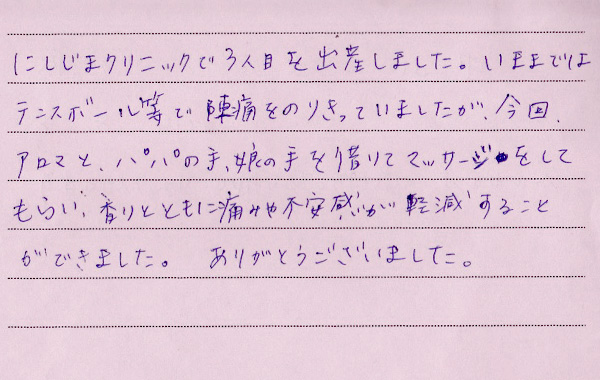 にしじまクリニックで3人目を出産しました。いままでは
テニスボール等で陣痛をのりきっていましたが、今回、
アロマと、パパの手、娘の手を借りてマッサージをして
もらい、香りとともに痛みや不安感が軽減すること
ができました。 ありがとうございました。